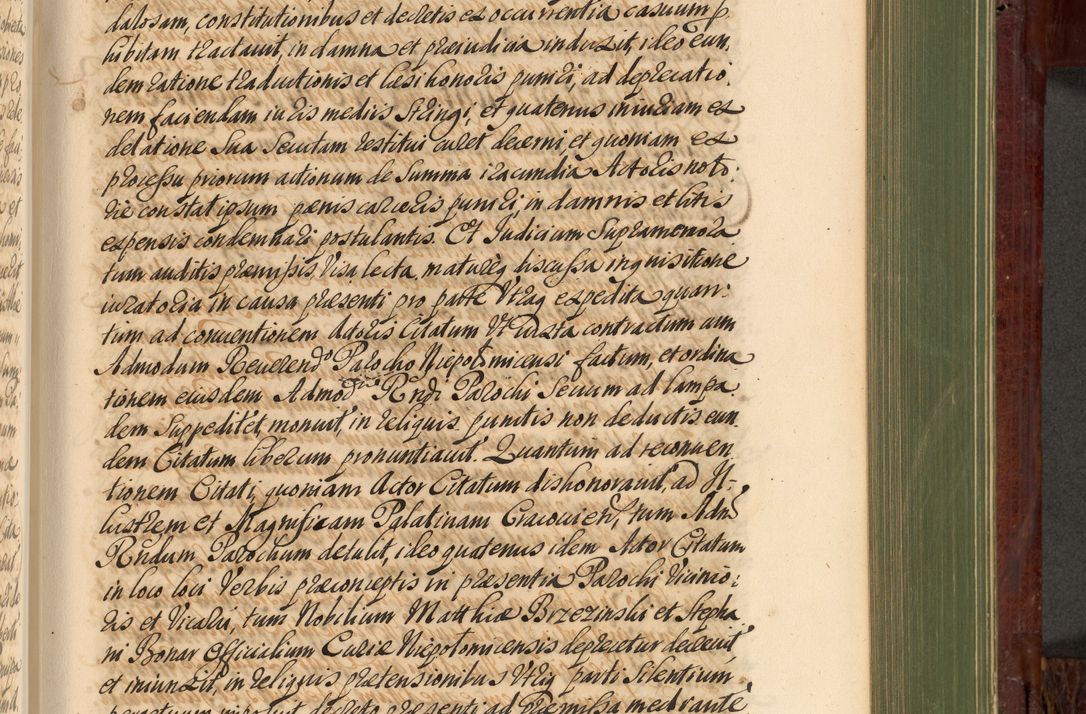 dalosam, constitutionibus et decretis ex occurrentia casuum p
hibitam tractavit, in damna et præiudicia induxit, ideo eun,
dem ratione traductionis et læsi honoris puniri, ad deprecatio,
nem faciendam iuris mediis stringi, et quatenus iniuriam ex
delatione Sua Secutam restitui curet decerni, et quoniam ex
processu priorum actionum de Summa iracundia Actoris noto,
rie constat ipsum pœnis carceris puniri, in damnis et litis
expensis condemnari postulantis. Et Judicium Supramenora
tum auditis præmissis Visa lecta, matureq discussa inquisitione
iuratoria in causa præsenti pro parte Utraq expedita quan,
tum ad conventionem Actoris Citatum Ut iuxta contractum cum
Admodum Reverendo Parocho Niepolomicensi factum, et ordina
tionem eiusdem Admod Rndi Parochi Sevum ad lampa
dem Suppeditet, monuit, in reliquis punctis non deductis eun
dem Citatum liberum pronuntiavit. Quantum ad reconven
tionem Citati, quoniam Actor Citatum dishonoravit, ad Il,
lustrem et Magnificam Palatinam Cracovien, tum Adm
Rndum Parochum detulit, ideo quatenus idem Actor Citatum
in loco loci Verbis præconceptis in præsentia Parochi Vicinio,
ris et Vicarii, tum Nobilium Matthiæ Brzezinski et Stepha
ni Bonar Officialium Curiæ Niepolomicensis deprecetur decrevit,
et iniunxit, in reliquis prætensionibus Utriq parti Silentium
perpetuum imposuit decreto præsenti ad præmissa mediante